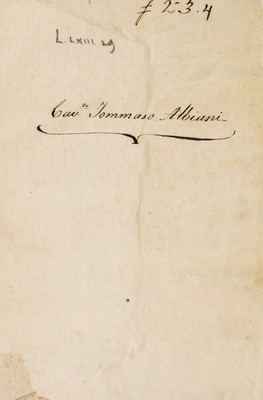 ƒ 2-3.4
L. LXIII. 29
Cav.re Tommaso Albiani